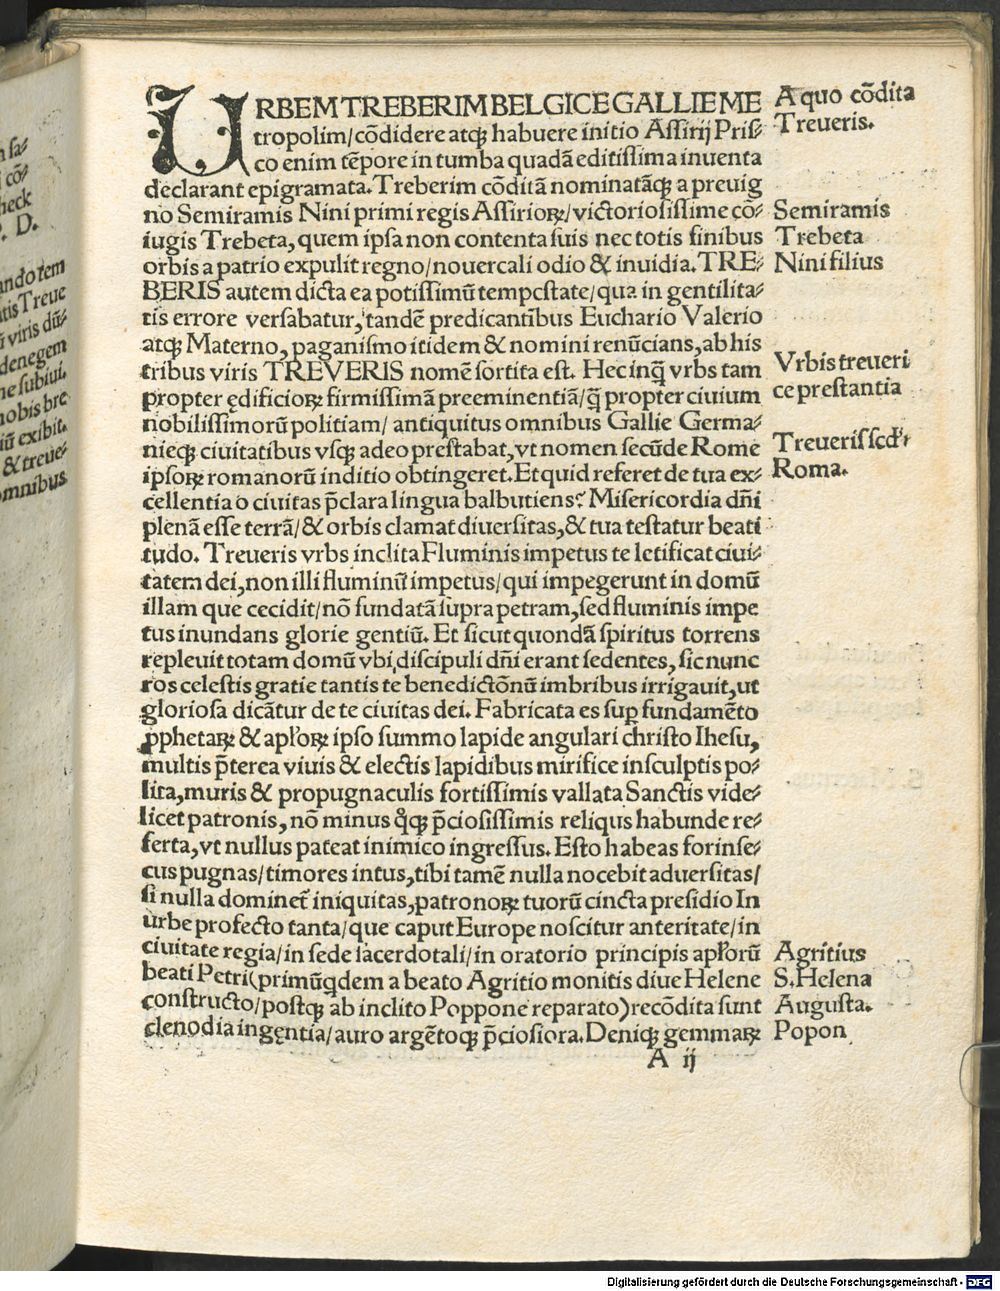 URBEM TREBERIM BELGICE GALLIE ME
tropolim/cōdidere atqꝫ habuere initio Assirij Pris⸗
co enim tēpore in tumba quadā editissima inuenta
declarant epigramata. Treberim cōditā nominatāqꝫ a preuig
no Semiramis Nini primi regis Assirioꝝ/victoriosissime cō⸗
iugis Trebeta, quem ipsa non contenta suis nec totis finibus
orbis a patrio expulit regno/nouercali odio & inuidia. TRE⸗
BERIS autem dicta ea potissimū tempestate/qua in gentilita⸗
tis errore versabatur, tandē predicantibus Euchario Valerio
atqꝫ Materno, paganismo itidem & nomini renūcians, ab his
tribus viris TREVERIS nomē sortita est. Hec inq̄ vrbs tam
propter ędificioꝝ firmissimā preeminentiā/q̄ propter ciuium
nobilissimorū politiam/ antiquitus omnibus Gallie Germa⸗
nieqꝫ ciuitatibus vsqꝫ adeo prestabat, vt nomen secūde Rome
ipsoꝝ romanorū inditio obtingeret. Et quid referet de tua ex⸗
cellentia o ciuitas p̄clara lingua balbutiens? Misericordia dn̄i
plenā esse terrā/& orbis clamat diuersitas, & tua testatur beati
tudo. Treueris vrbs inclita Fluminis impetus te letificat ciui⸗
tatem dei, non illi fluminū impetus/qui impegerunt in domū
illam que cecidit/nō fundatā supra petram, sed fluminis impe
tus inundans glorie gentiū. Et sicut quondā spiritus torrens
repleuit totam domū vbi discipuli dn̄i erant sedentes, sic nunc
ros celestis gratie tantis te benedictōnū imbribus irrigauit, ut
gloriosa dicātur de te ciuitas dei. Fabricata es suꝑ fundamēto
ꝓphetaꝝ & apl'oꝝ ipso summo lapide angulari christo Ihesu,
multis p̄terea viuis & electis lapidibus mirifice insculptis po⸗
lita, muris & propugnaculis fortissimis vallata Sanctis vide⸗
licet patronis, nō minus q̄qꝫ p̄ciosissimis reliqus habunde re⸗
ferta, vt nullus pateat inimico ingressus. Esto habeas forinse⸗
cus pugnas/timores intus, tibi tamē nulla nocebit aduersitas/
si nulla dominet̄ iniquitas, patronoꝝ tuorū cincta presidio In
urbe profecto tanta/que caput Europe noscitur anteritate/in
ciuitate regia/in sede sacerdotali/in oratorio principis apl'orū
beati Petri(primūqdem a beato Agritio monitis diue Helene
constructo/postqꝫ ab inclito Poppone reparato)recōdita sunt
clenodia ingentia/auro argētoqꝫ p̄ciosiora. Deniqꝫ gemmaꝝ
A ij
A quo cōdita
Treueris.
Semiramis
Trebeta
Nini filius
Vrbis treueri
ce prestantia
Treueris scd'
Roma.
Agritius
S. Helena
Augusta.
Popon
cō
heck
P. D.
ando tem
tis Treue
viris dū⸗
denegem
ne subiui.
nobis bre
iū exibit.
& treue⸗
omnibus
Digitalisierung gefördert durch die Deutsche Forschungsgemeinschaft - DFG